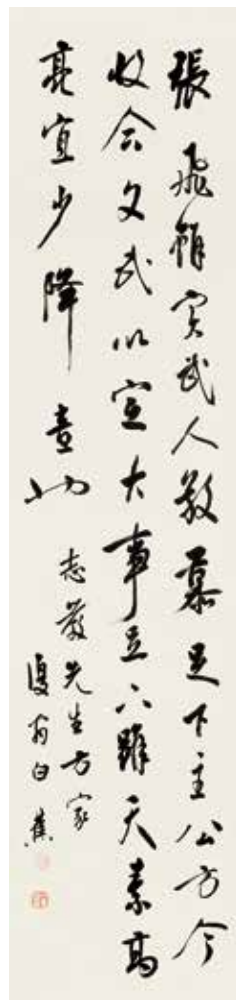 張飛雖實武人敬慕足下主公方今
收合文武以定大事足下雖天素高
亮宜少降意也
志嚴先生方家
復翁白蕉